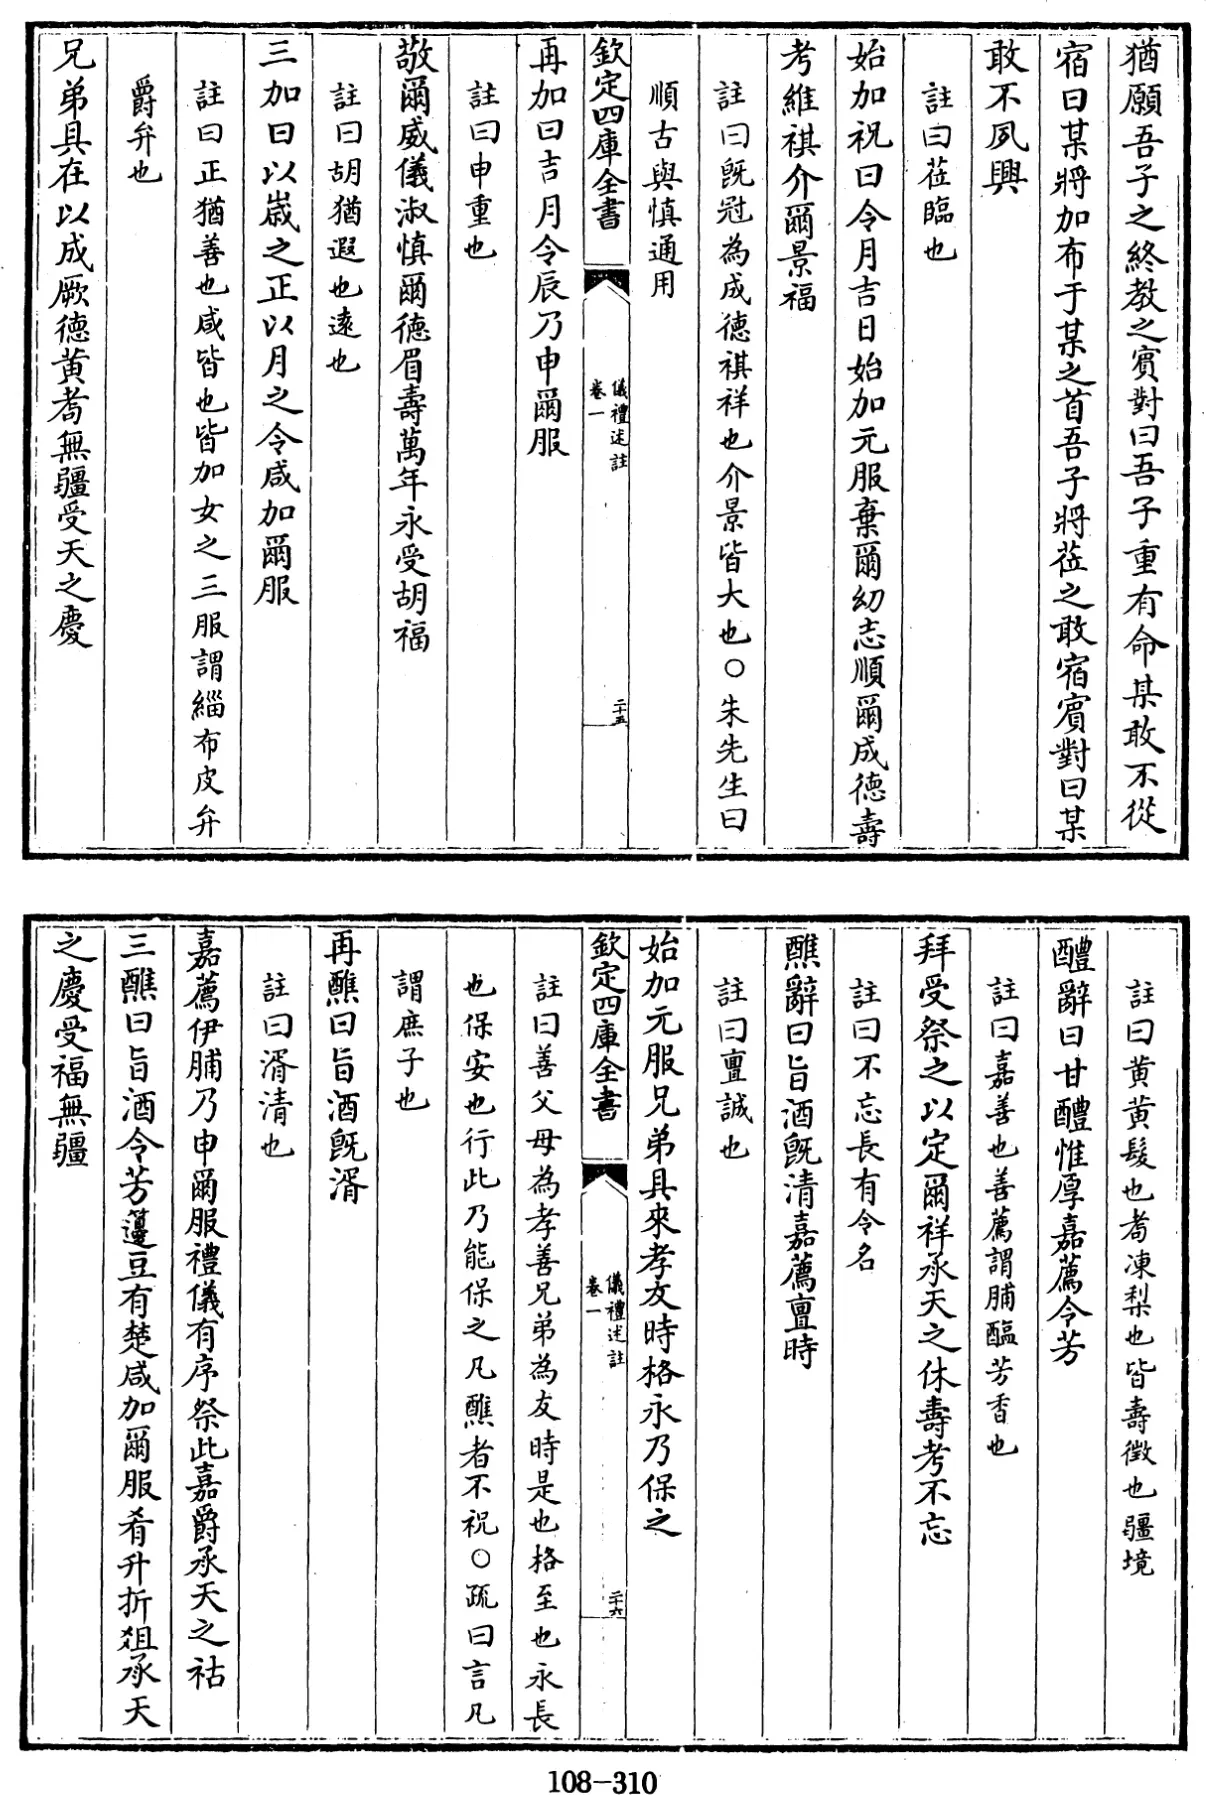 猶願吾子之終教之賓對曰吾子重有命某敢不從
宿曰某將加布于某之首吾子將莅之敢宿賓對曰某
敢不夙興
註曰莅臨也
始加祝曰令月吉日始加元服棄爾幼志順爾成德壽
考維祺介爾景福
註曰既冠為成德祺祥也介景皆大也○朱先生曰
順古與慎通用
欽定四庫全書
儀禮述註
卷一
二十五
再加曰吉月令辰乃申爾服
註曰申重也
敬爾威儀淑慎爾德眉壽萬年永受胡福
註曰胡猶遐也遠也
三加曰以歲之正以月之令咸加爾服
註曰正猶善也咸皆也皆加女之三服謂緇布皮弁
爵弁也
兄弟具在以成厥德黃耇無疆受天之慶
註曰黃黃髮也耇凍梨也皆壽徵也疆境
醴辭曰甘醴惟厚嘉薦令芳
註曰嘉善也善薦謂脯醢芳香也
拜受祭之以定爾祥承天之休壽考不忘
註曰不忘長有令名
醮辭曰旨酒既清嘉薦亶時
註曰亶誠也
始加元服兄弟具來孝友時格永乃保之
欽定四庫全書
儀禮述註
卷一
二十六
註曰善父母為孝善兄弟為友時是也格至也永長
也保安也行此乃能保之凡醮者不祝○疏曰言凡
謂庶子也
再醮曰旨酒既湑
註曰湑清也
嘉薦伊脯乃申爾服禮儀有序祭此嘉爵承天之祜
三醮曰旨酒令芳籩豆有楚咸加爾服肴升折俎承天
之慶受福無疆
108-310